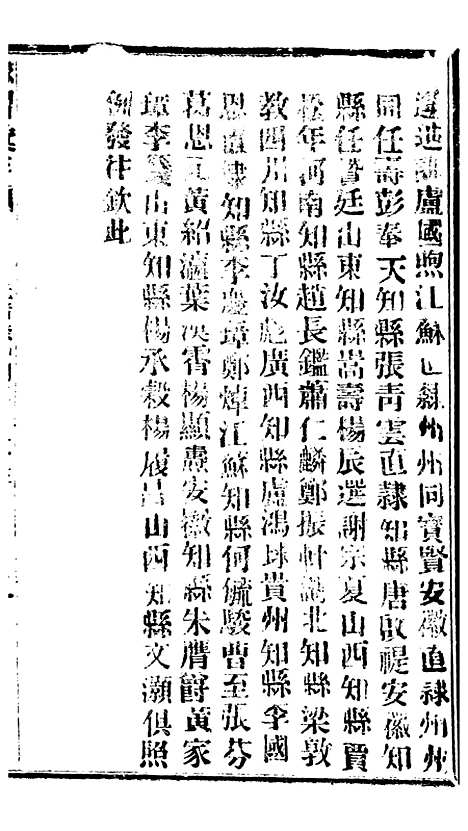 盧國煦江蘇直隸州州同寶賢安徽直隸州州
同任壽彭奉天知縣張靑雲直隸知縣唐啟禔安徽知
縣任晉廷山東知縣嵩壽楊辰選謝宗夏山西知縣賈
松年河南知縣趙長鑑蕭仁麟鄭振 湖北知縣梁敦
教四川知縣丁汝彪廣西知縣盧鴻 貴州知縣李國
恩直隸知縣李慶璋鄭焯江蘇知縣何毓駿曹至張芬
葛恩 黃紹 葉 霄楊顯 安徽知縣朱膺爵黃家
瑋李 山東知縣楊承穀楊履 山西知縣文灝俱照
例發往欽此